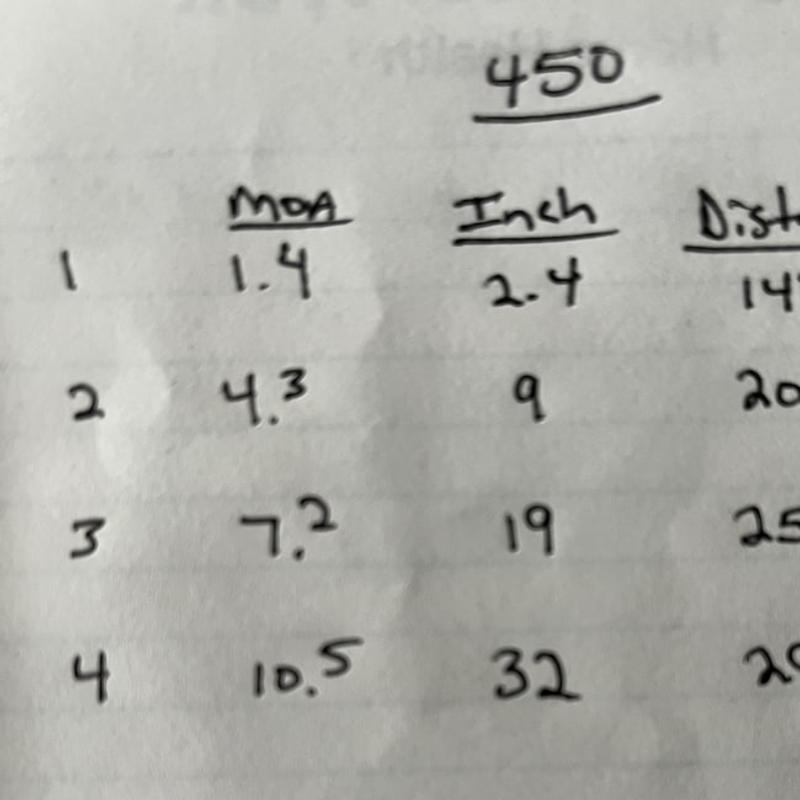 450
MOA Inch Dist
1 1.4 2.4 14
2 4.3 9 20
3 7.2 19 25
4 10.5 32 2